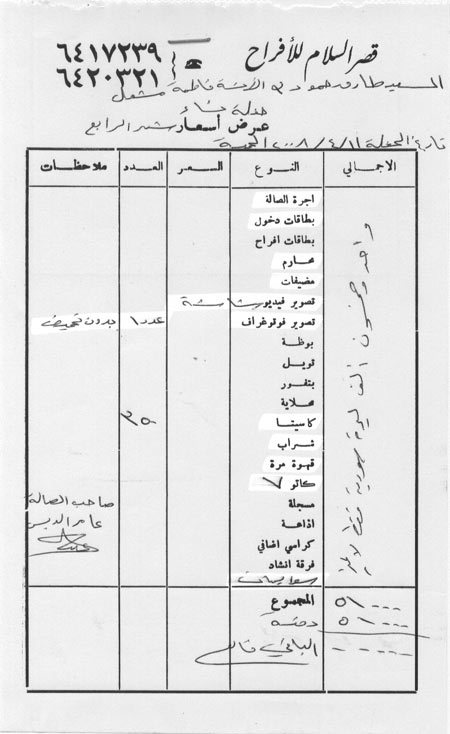 قصر السلام للأفراح
٦٤١٧٢٣٩
٦٤٢٠٣٢١
السيد طارق حمود و الآنسة فاطمة مشعل
حفلة نساء
عرض أسعار شهر الرابع
تاريخ الحفلة ٢٠٠٨/٤/١١ الجمعة
الاجمالي النوع السعر العدد ملاحظات
اجرة الصالة
بطاقات دخول
بطاقات افراح
محارم
مضيفات
تصوير فيديو شاشة
تصوير فوتوغراف عدد ١ بدون تحميض
بوظة
تويل
بتفور
محلاية
كاسيتا ٣٥٠
شراب
قهوة مرة
كاتو ٧
مسجلة
اذاعة
كراسي اضافي
فرقة انشاد
واحد وخمسون ألف ليرة سورية فقط لا غير
صاحب الصالة
عامر الدبس
المجموع ٥١٠٠٠
دفعة ٥١٠٠٠
الباقي